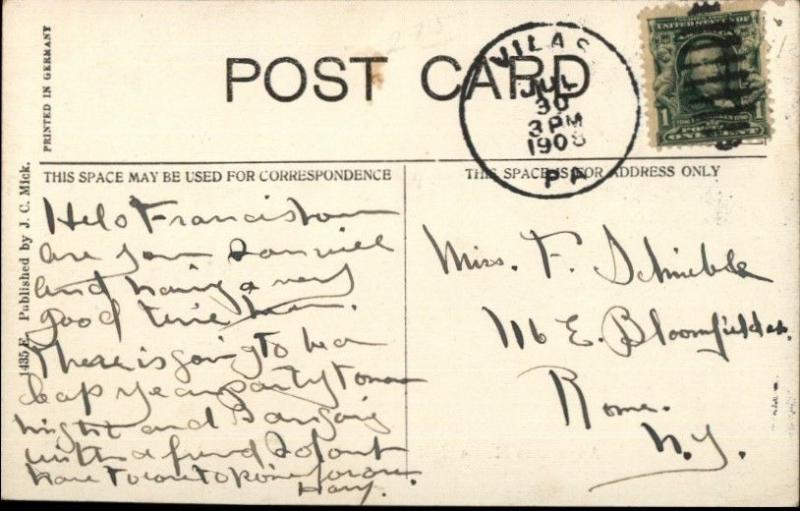 POST CARD
VILAS
JUL
30
3 PM
1908
PA
1
ONE CENT
PRINTED IN GERMANY
1435 E. Published by J. C. Mick.
THIS SPACE MAY BE USED FOR CORRESPONDENCE
THIS SPACE IS FOR ADDRESS ONLY
Helo Francis how
are you I am well
and having a very
good time here.
There is going to be a
leap year party tomorrow
night and I am going
with a friend so I don't
have to
Harry.
Miss. F. Schieble
116 E. Bloomfield st.
Rome.
N.Y.